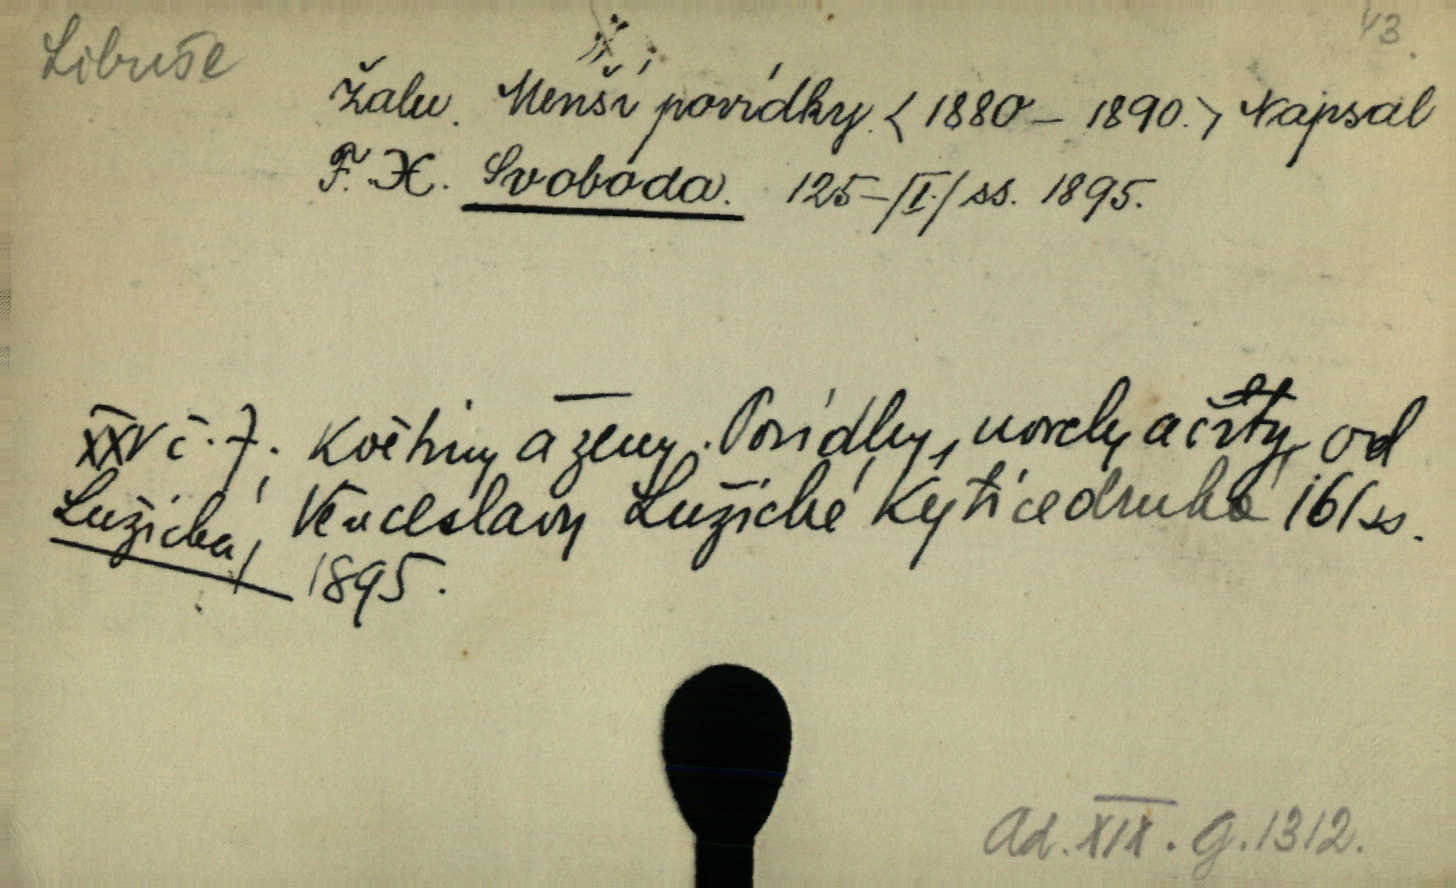 Libuše
43.
Žalu. Menší povídky. <1880 – 1890.> Napsal
F. X. Svoboda. 125–/I./ ss. 1895.
XXV č. 7. Květiny a ženy. Povídky, novely a črty od
Lužická, Věnceslavy Lužické Kytice druhá 161 ss.
1895.
Ad. XIX. G. 1312.